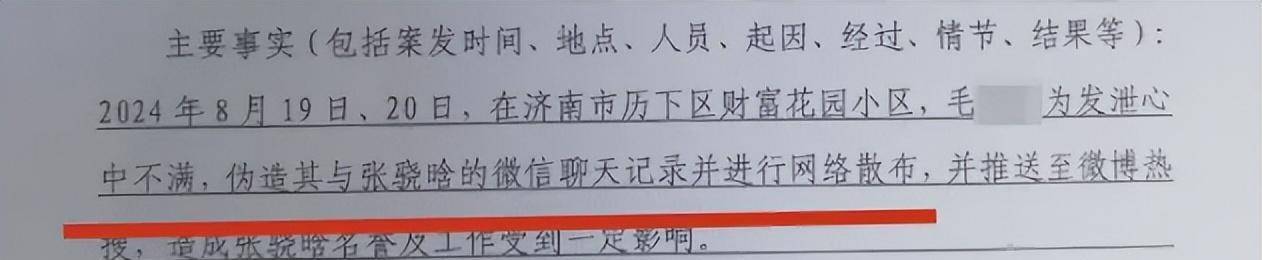 主要事实(包括案发时间、地点、人员、起因、经过、情节、结果等):
2024年8月19日、20日,在济南市历下区财富花园小区,毛 为发泄心
中不满,伪造其与张骁晗的微信聊天记录并进行网络散布,并推送至微博热
搜,造成张骁晗名誉及工作受到一定影响。